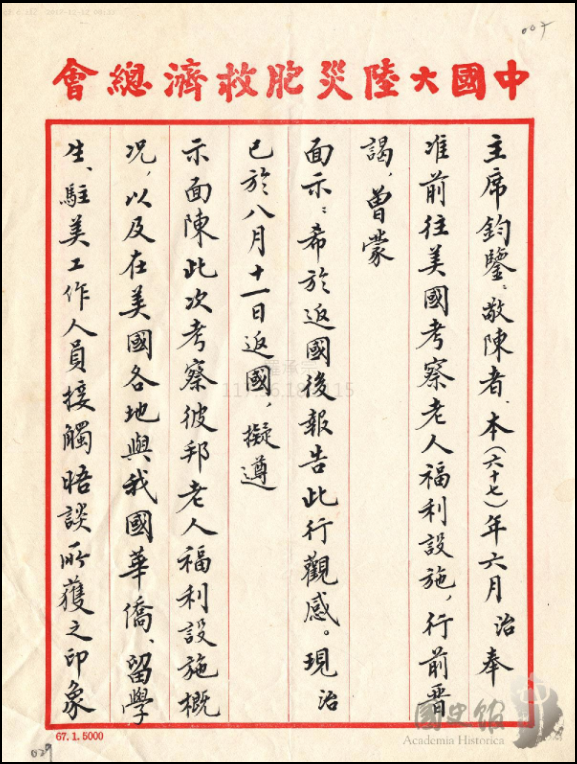 007
中國大陸災胞救濟總會
主席鈞鑒：敬陳者、本(六十七)年六月治奉
准前往美國考察老人福利設施，行前晋
謁，曾蒙
面示：希於返國後報告此行觀感。現治
已於八月十一日返國，擬遵
示面陳此次考察彼邦老人福利設施概
況，以及在美國各地與我國華僑、留學
生、駐美工作人員接觸晤談所獲之印象
67.1.5000
國史館
Academia Historica